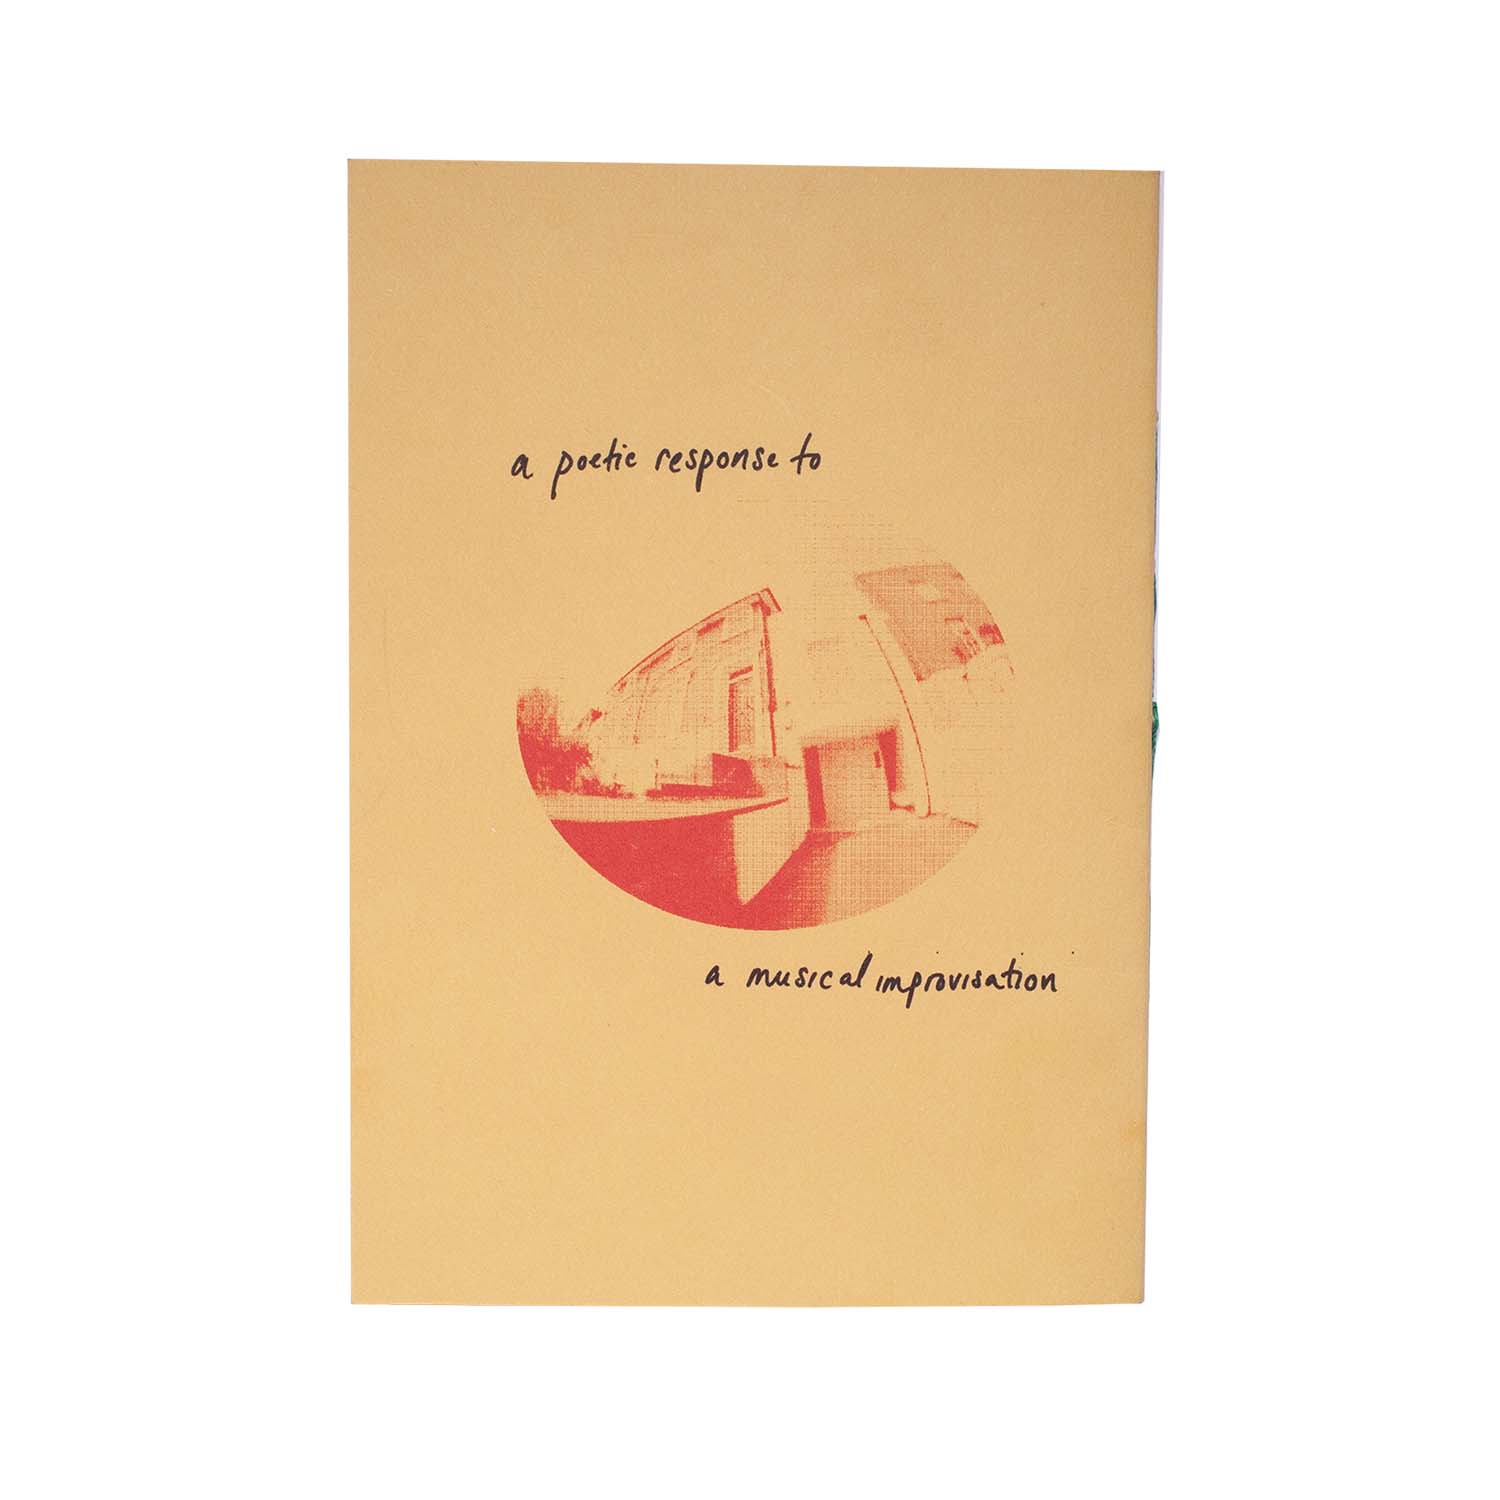 a poetic response to
a musical improvisation